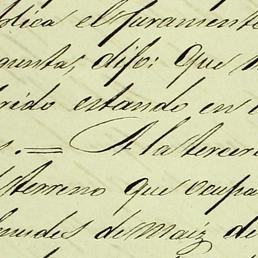 ólica el Juramento
gunta, dijo: Que
rido estando en
s.= A la tercera
terreno que ocupa
mudes de Maiz de